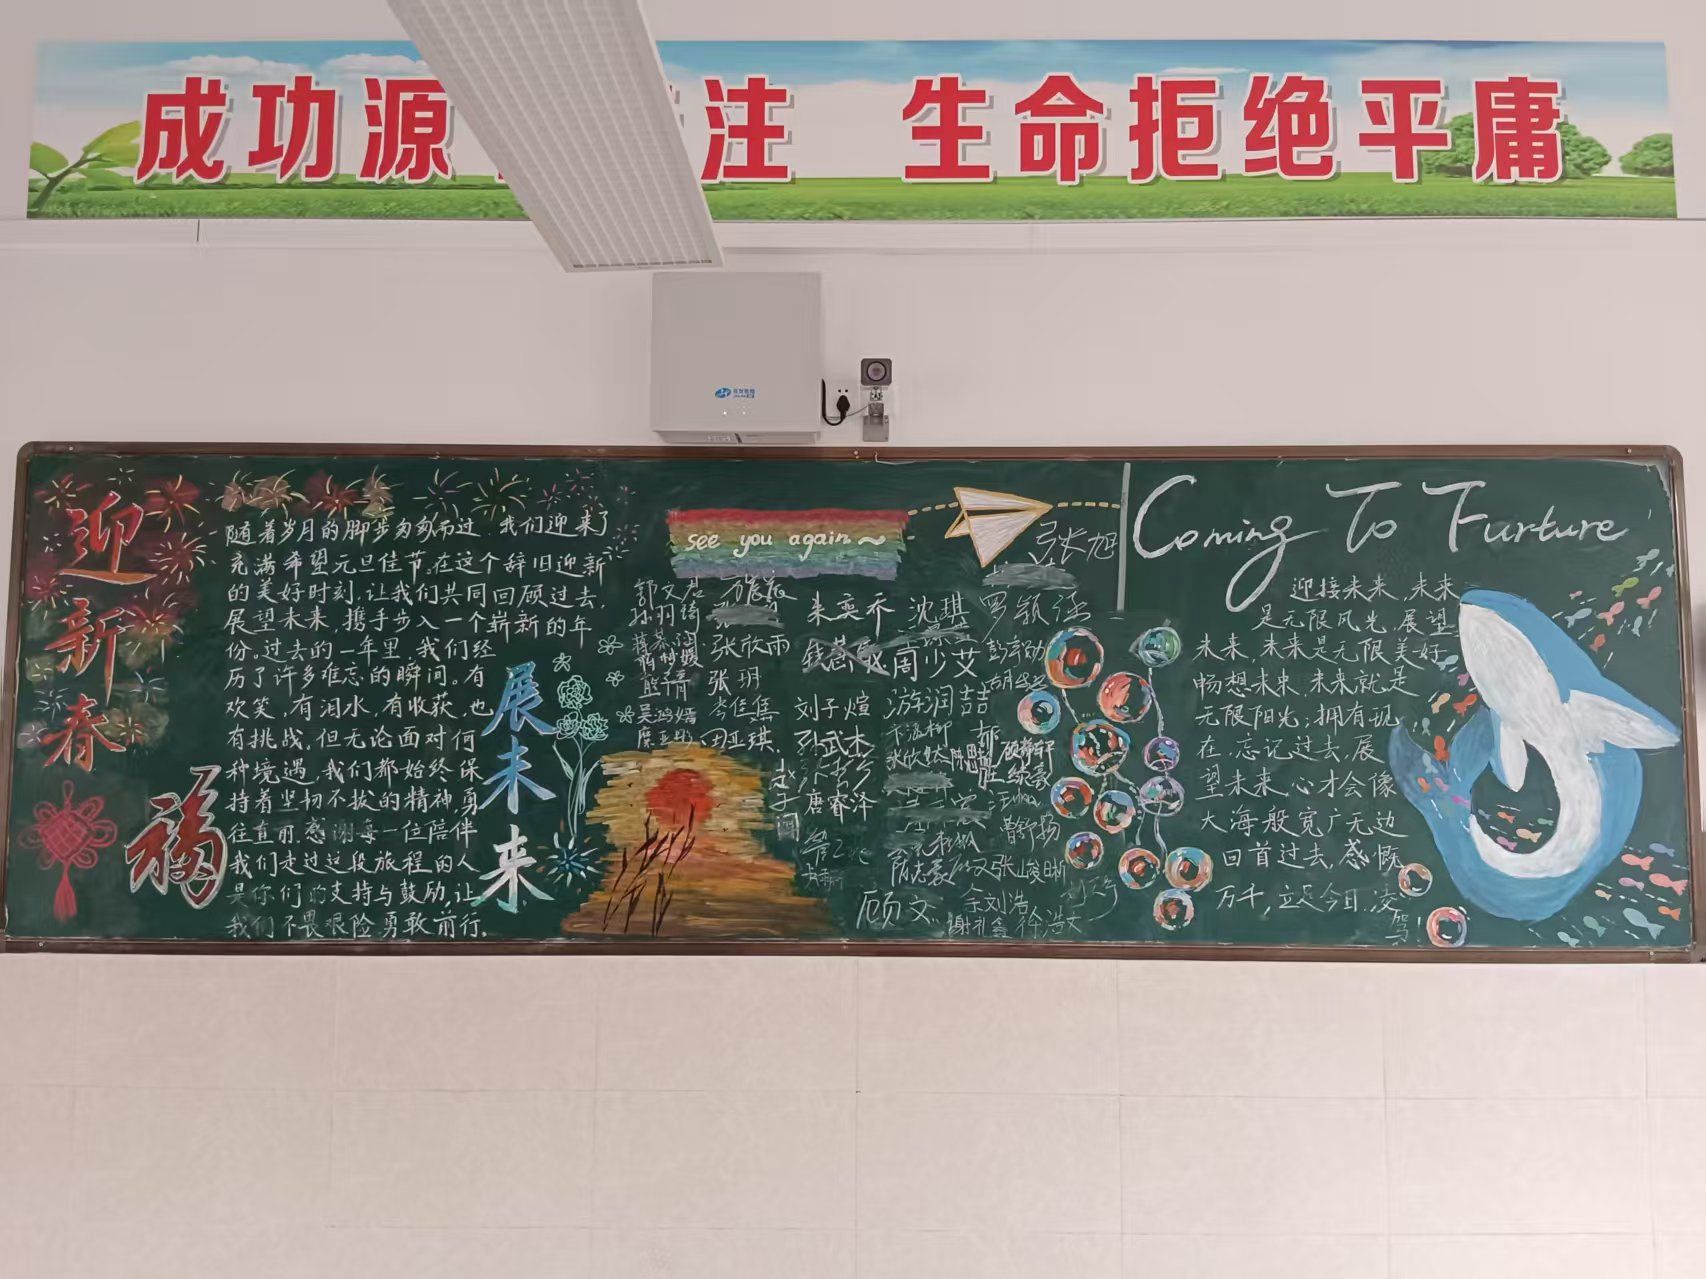 成功源 注 生命拒绝平庸
迎新春
福
随着岁月的脚步匆匆而过 我们迎来了
充满希望元旦佳节。在这个辞旧迎新
的美好时刻,让我们共同回顾过去,
展望未来,携手步入一个崭新的年
份。过去的一年里,我们经
历了许多难忘的瞬间。有
欢笑,有泪水,有收获,也
有挑战。但无论面对何
种境遇,我们都始终保
持着坚韧不拔的精神,勇
往直前。感谢每一位陪伴
我们走过这段旅程的人
是你们的支持与鼓励,让
我们不畏艰险勇敢前行。
展未来
see you again~
张旭
郭文君
孙羽琦
张欣雨
张玥
田亚琪
朱奕乔 沈琪 罗毓经
周少艾
刘子煊 游润喆
孙武杰
唐睿泽
张峻晰
顾文
余刘浩
谢礼鑫 徐浩文
Coming To Furture
迎接未来,未来
是无限风光,展望
未来,未来是无限美好
畅想未来,未来就是
无限阳光;拥有现
在,忘记过去,展
望未来,心才会像
大海般宽广无边
回首过去,感慨
万千,立足今日,凌
驾